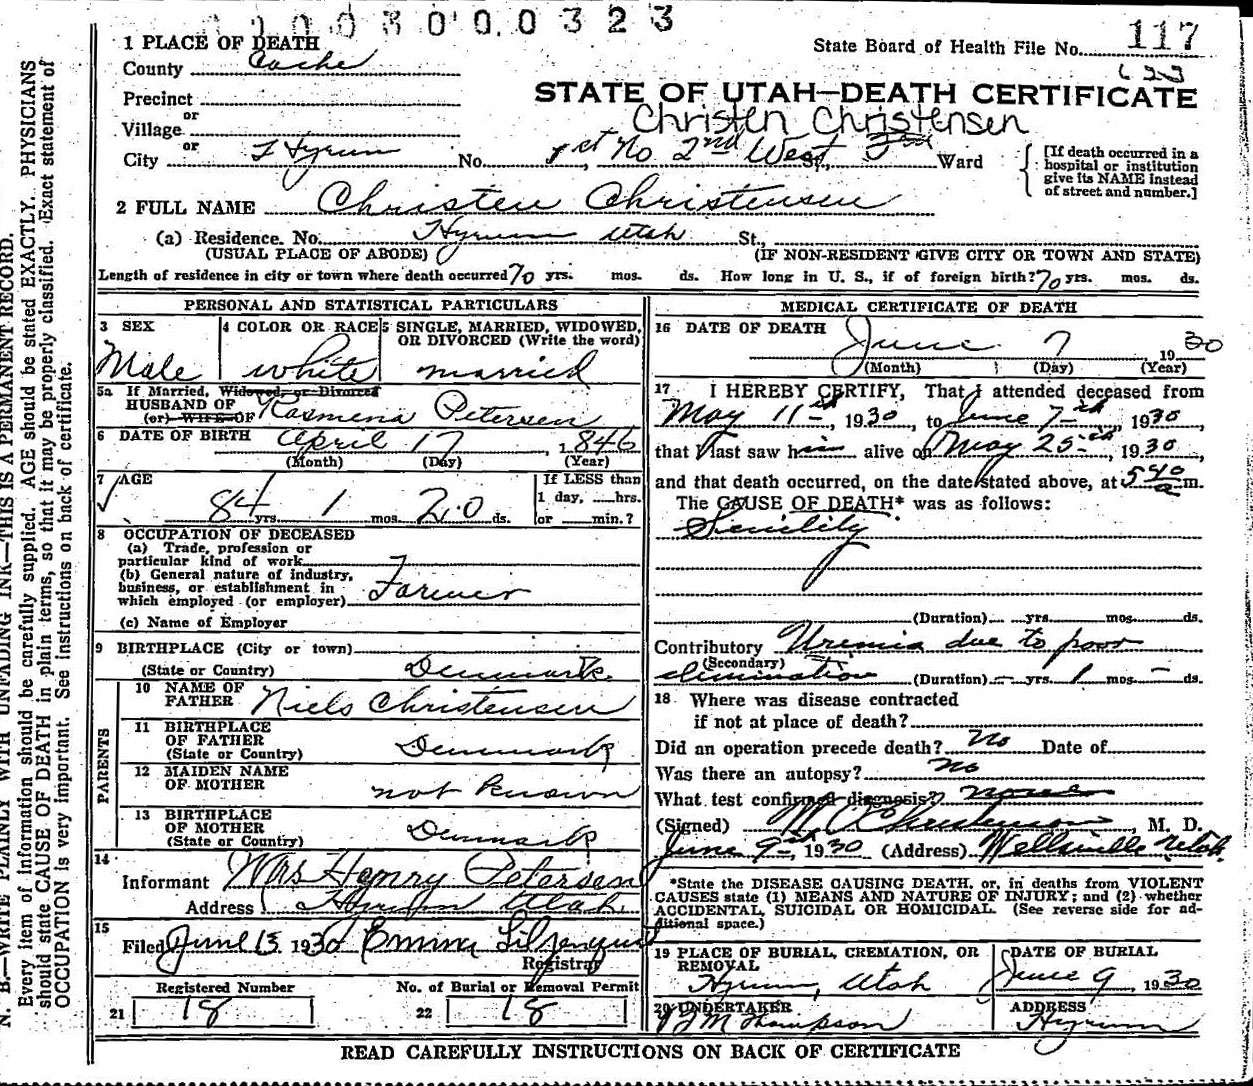 0 0 3 0 0 0 0 3 2 3
1 PLACE OF DEATH
County Cache
State Board of Health File No. 117
Precinct
or
Village
STATE OF UTAH—DEATH CERTIFICATE
Christen Christensen
or
City Hyrum No. 1st No 2nd West St., 3rd Ward
[If death occurred in a
hospital or institution
give its NAME instead
of street and number.]
2 FULL NAME Christen Christensen
(a) Residence. No. Hyrum Utah St.,
(USUAL PLACE OF ABODE) (IF NON-RESIDENT GIVE CITY OR TOWN AND STATE)
Length of residence in city or town where death occurred 70 yrs. mos. ds. How long in U. S., if of foreign birth? 70 yrs. mos. ds.
PERSONAL AND STATISTICAL PARTICULARS
3 SEX
Male
4 COLOR OR RACE
white
5 SINGLE, MARRIED, WIDOWED,
OR DIVORCED (Write the word)
married
5a If Married, Widowed, or Divorced
HUSBAND OF
(or) WIFE OF Rasmena Petersen
6 DATE OF BIRTH April 17, 1846
(Month) (Day) (Year)
7 AGE
84 yrs. 1 mos. 20 ds.
If LESS than
1 day, hrs.
or min.?
8 OCCUPATION OF DECEASED
(a) Trade, profession or
particular kind of work
(b) General nature of industry,
business, or establishment in
which employed (or employer) Farmer
(c) Name of Employer
9 BIRTHPLACE (City or town)
(State or Country) Denmark
PARENTS
10 NAME OF
FATHER Niels Christensen
11 BIRTHPLACE
OF FATHER
(State or Country) Denmark
12 MAIDEN NAME
OF MOTHER not known
13 BIRTHPLACE
OF MOTHER
(State or Country) Denmark
14
Informant Mrs Henry Petersen
Address Hyrum Utah
15
Filed June 13 1930 Emma
Registrar
Registered Number
21 18
No. of Burial or Removal Permit
22 18
MEDICAL CERTIFICATE OF DEATH
16 DATE OF DEATH
June 7 1930
(Month) (Day) (Year)
17 I HEREBY CERTIFY, That I attended deceased from
May 11th, 1930, to June 7th, 1930
that I last saw him alive on May 25th, 1930,
and that death occurred, on the date stated above, at 540 a m.
The CAUSE OF DEATH* was as follows:
Senility
(Duration) yrs. mos. ds.
Contributory Uremia due to poor
(Secondary)
elimination (Duration) — yrs. 1 mos. — ds.
18 Where was disease contracted
if not at place of death?
Did an operation precede death? No Date of
Was there an autopsy? no
What test confirmed diagnosis? none
(Signed) M C Christensen, M. D.
June 9th, 1930 (Address) Wellsville Utah.
*State the DISEASE CAUSING DEATH, or, in deaths from VIOLENT
CAUSES state (1) MEANS AND NATURE OF INJURY; and (2) whether
ACCIDENTAL, SUICIDAL OR HOMICIDAL. (See reverse side for ad-
ditional space.)
19 PLACE OF BURIAL, CREMATION, OR
REMOVAL
Hyrum, Utah
DATE OF BURIAL
June 9, 1930
20 UNDERTAKER
J M Thompson
ADDRESS
Hyrum
READ CAREFULLY INSTRUCTIONS ON BACK OF CERTIFICATE
N. B.—WRITE PLAINLY WITH UNFADING INK—THIS IS A PERMANENT RECORD.
Every item of information should be carefully supplied. AGE should be stated EXACTLY. PHYSICIANS
should state CAUSE OF DEATH in plain terms, so that it may be properly classified. Exact statement of
OCCUPATION is very important. See instructions on back of certificate.